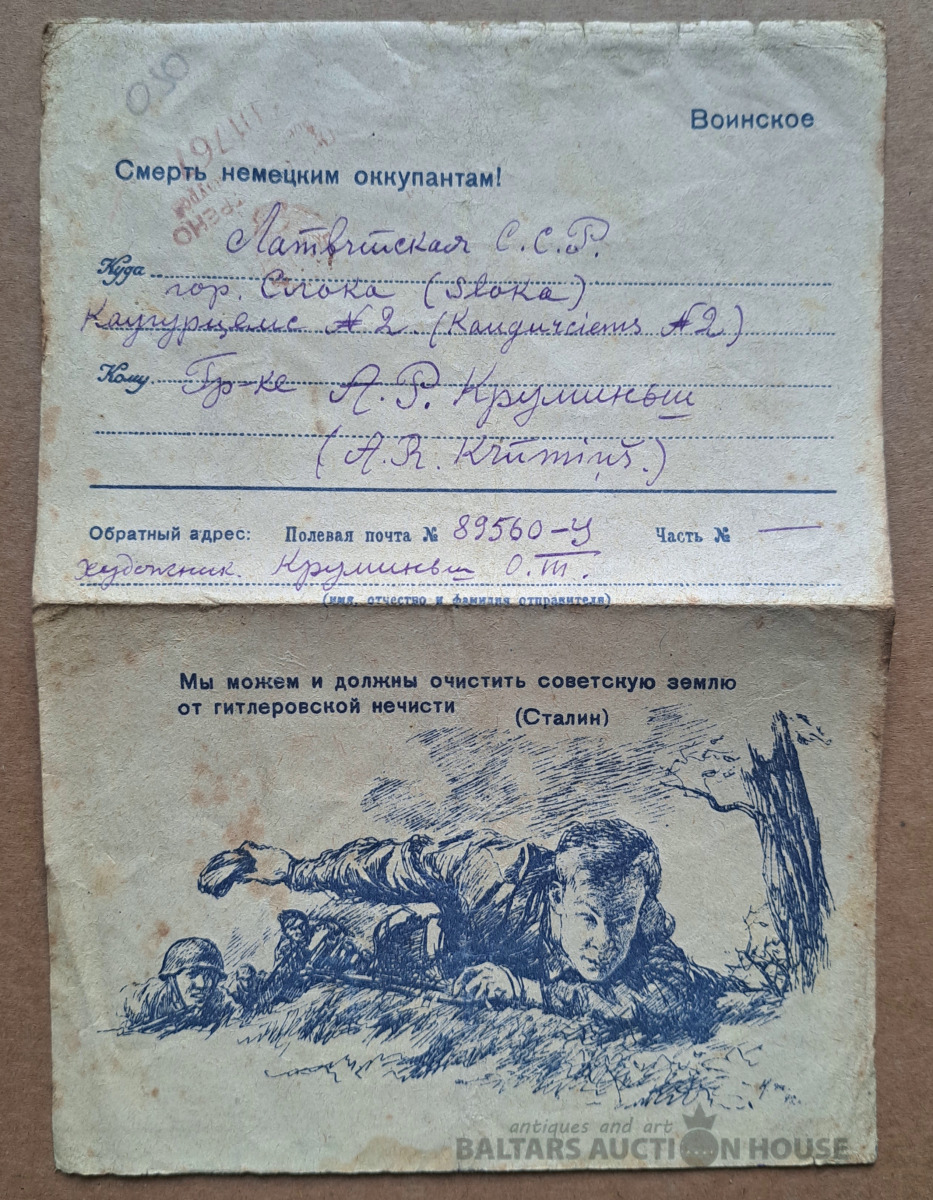 Воинское
Смерть немецким оккупантам!
Куда Латвийская С.С.Р.
гор. Слока (Sloka)
Каугурциемс №2. (Kaugurciems №2)
Кому Гр-ке А.Р. Круминьш
(A.R. Krūmiņš.)
Обратный адрес: Полевая почта № 89560-У Часть № —
художник. Круминьш О.Т.
(имя, отчество и фамилия отправителя)
Мы можем и должны очистить советскую землю
от гитлеровской нечисти (Сталин)
antiques and art
BALTARS AUCTION HOUSE